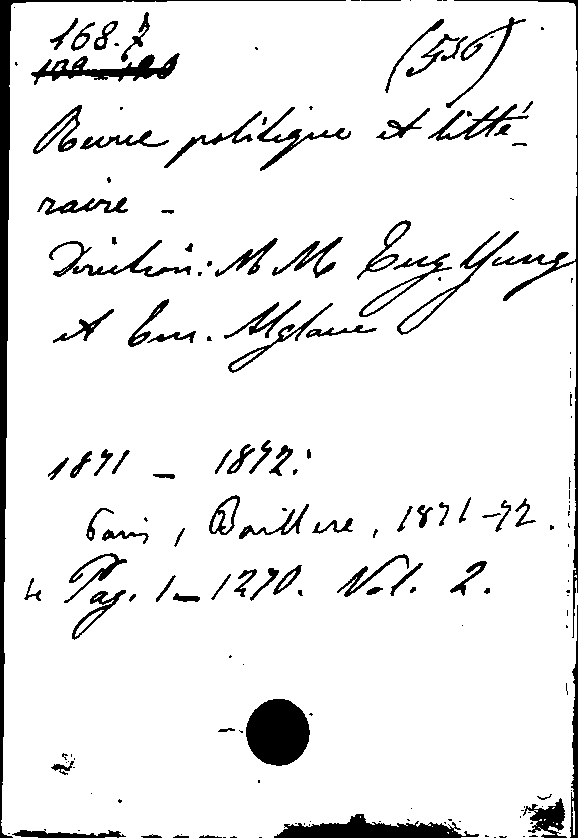 168.7
(556)
Revue politique et litté-
raire -
Direction: M M Eug. Yung
et Em. Alglave
1871 - 1872:
Paris, Baillere, 1871-72.
4 Pag. 1-1270. Vol. 2.